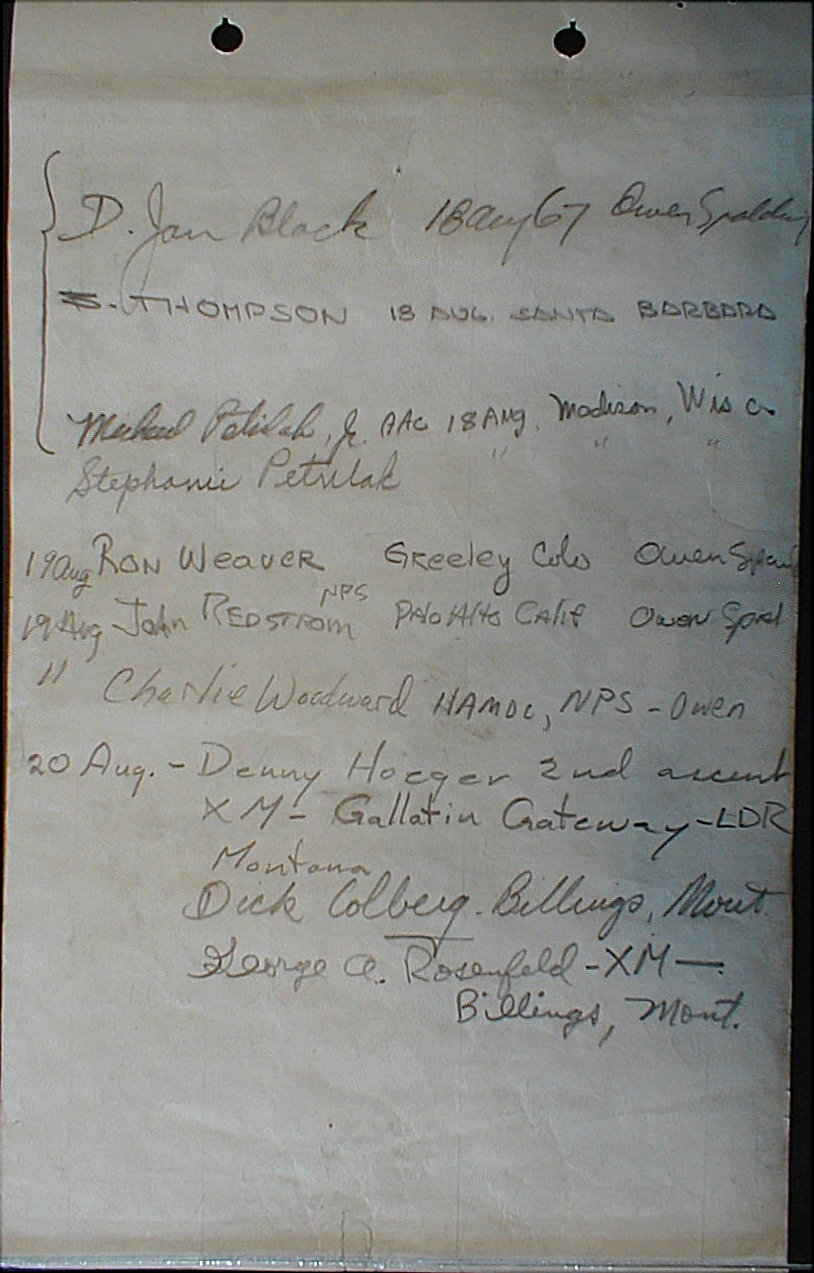 D. Jan Black 18 Aug 67 Owen Spalding
S. THOMPSON 18 AUG. SANTA BARBARA
Michael Petrilak, Jr. AAC 18 Aug. Madison, Wisc.
Stephanie Petrilak " " "
19 Aug Ron Weaver Greeley Colo Owen
19 Aug John Redstrom NPS Palo Alto Calif Owen Spal
" Charlie Woodward NPS - Owen
20 Aug. - Denny Hoeger 2nd ascent
XM - Gallatin Gateway - LDR
Montana
Dick Colberg - Billings, Mont
George A. Rosenfeld - XM -
Billings, Mont.